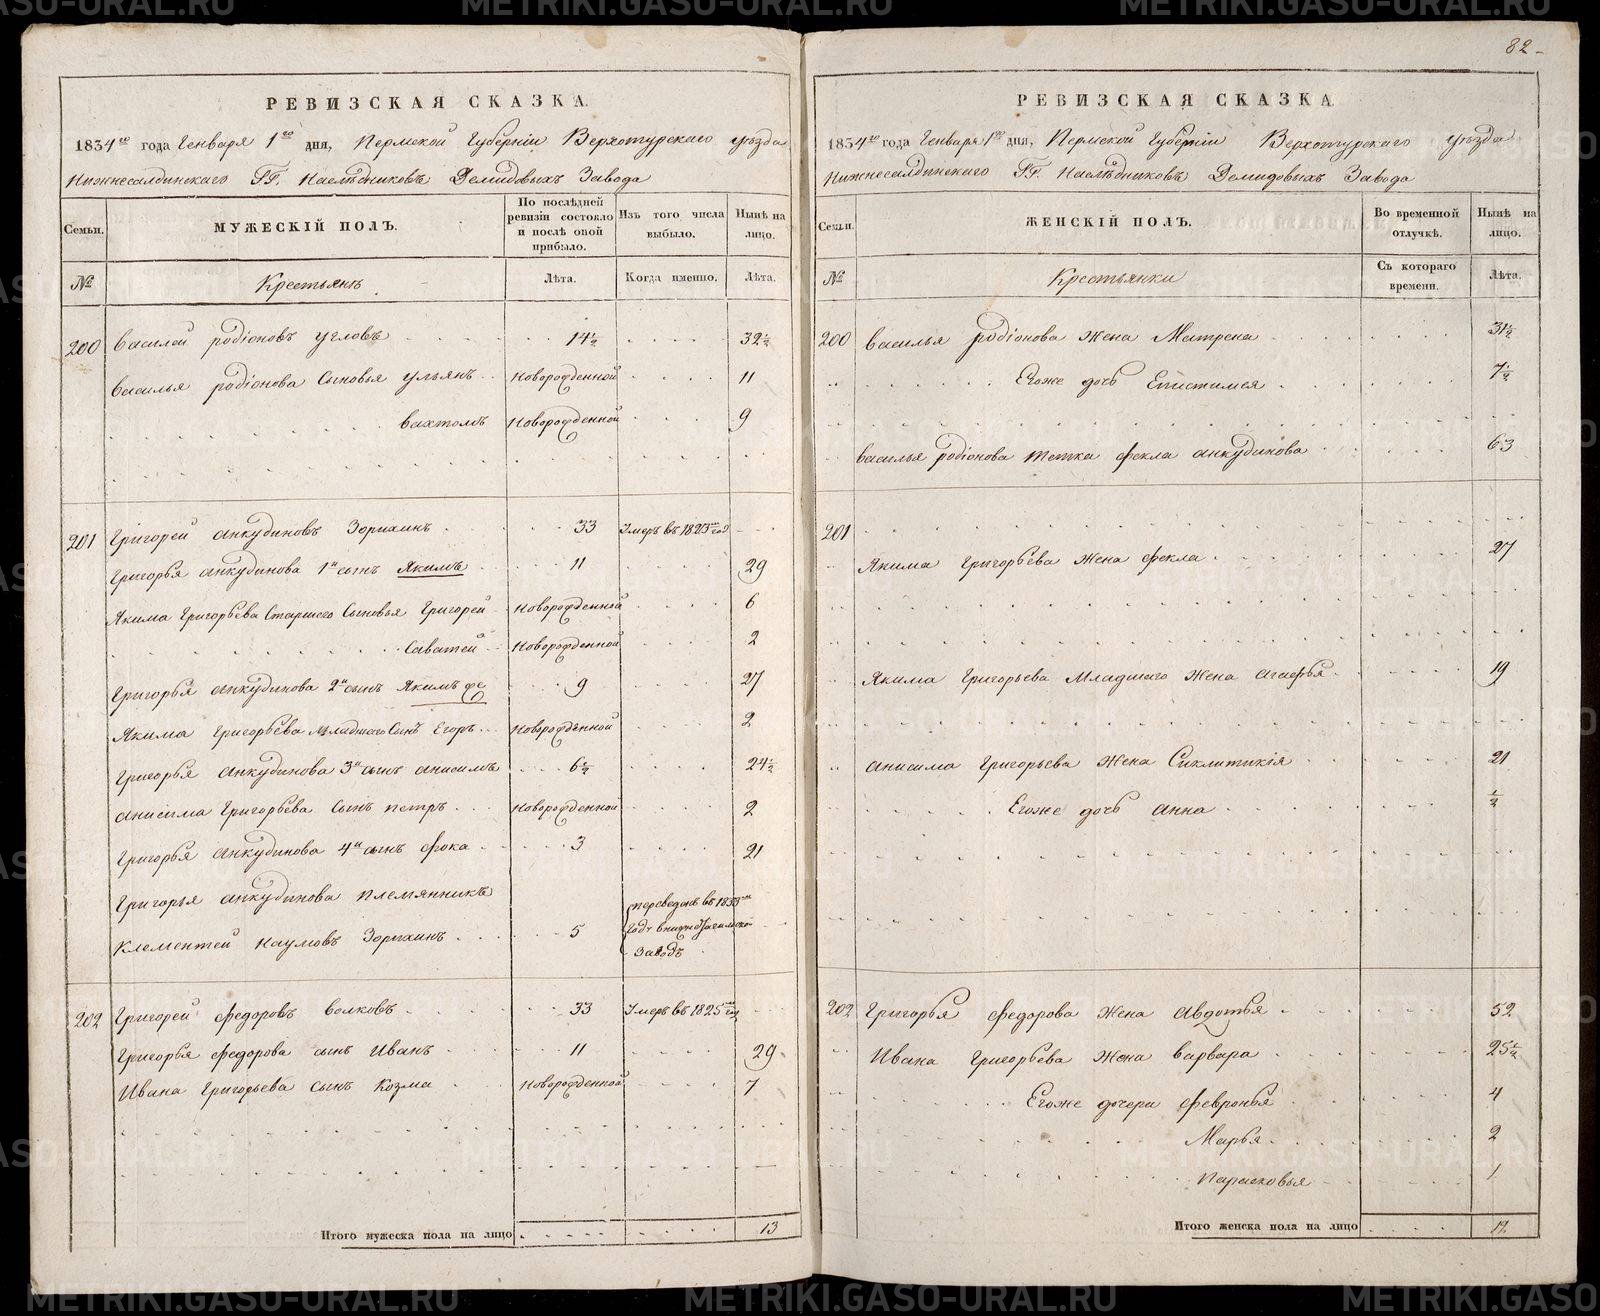 82
РЕВИЗСКАЯ СКАЗКА.
1834го года Генваря 1го дня, Пермской Губернiи Верхотурскаго уѣзда
Нижнесалдинскаго ГГ. Наслѣдниковъ Демидовыхъ Завода
Семьи. МУЖЕСКІЙ ПОЛЪ. По послѣдней ревизіи состояло и послѣ оной прибыло. Изъ того числа выбыло. Нынѣ на лицо.
№ Крестьянъ Лѣта. Когда именно. Лѣта.
200 Василей родіоновъ угловъ 14½ 32½
Василья родіонова Сыновья ульянъ Новорожденной 11
Новорожденной 9
201 Григорей анкудиновъ Зорихинъ 33 Умеръ въ 1823м год
Григорья анкудинова 1й сынъ Якимъ 11 29
Якима Григорьева Старшаго Сыновья Григорей Новорожденной 6
Саватей Новорожденной 2
Григорья анкудинова 2й сынъ Якимъ же 9 27
Якима Григорьева младшаго Сынъ Егоръ Новорожденной 2
Григорья анкудинова 3й сынъ анисимъ 6½ 24½
анисима Григорьева Сынъ петръ Новорожденной 2
Григорья анкудинова 4й сынъ фока 3 21
Григорья анкудинова племянникъ
Клементей Наумовъ Зорихинъ 5 переведенъ въ 1833м
году
Заводъ
202 Григорей федоровъ волковъ 33 Умеръ въ 1825м год
Григорья федорова сынъ Иванъ 11 29
Ивана Григорьева сынъ Козма Новорожденной 7
Итого мужеска пола на лицо 13
РЕВИЗСКАЯ СКАЗКА.
1834го года Генваря 1го дня, Пермской Губернiи Верхотурскаго уѣзда
Нижнесалдинскаго ГГ. Наслѣдниковъ Демидовыхъ Завода
Семьи. ЖЕНСКІЙ ПОЛЪ. Во временной отлучкѣ. Нынѣ на лицо.
№ Крестьянки Съ котораго времени. Лѣта.
200 Василья родіонова жена Матрена 31½
Егоже дочь Епистимея 7½
Василья родіонова тетка фекла анкудинова 63
201
Якима Григорьева жена фекла 27
Якима Григорьева Младшаго жена агафья 19
анисима Григорьева жена Сиклитикія 21
Егоже дочь анна ½
202 Григорья федорова жена авдотья 52
Ивана Григорьева жена варвара 25½
Егоже дочери февронья 4
Марья 2
Парасковья 1
Итого женска пола на лицо 12
METRIKI.GASO-URAL.RU